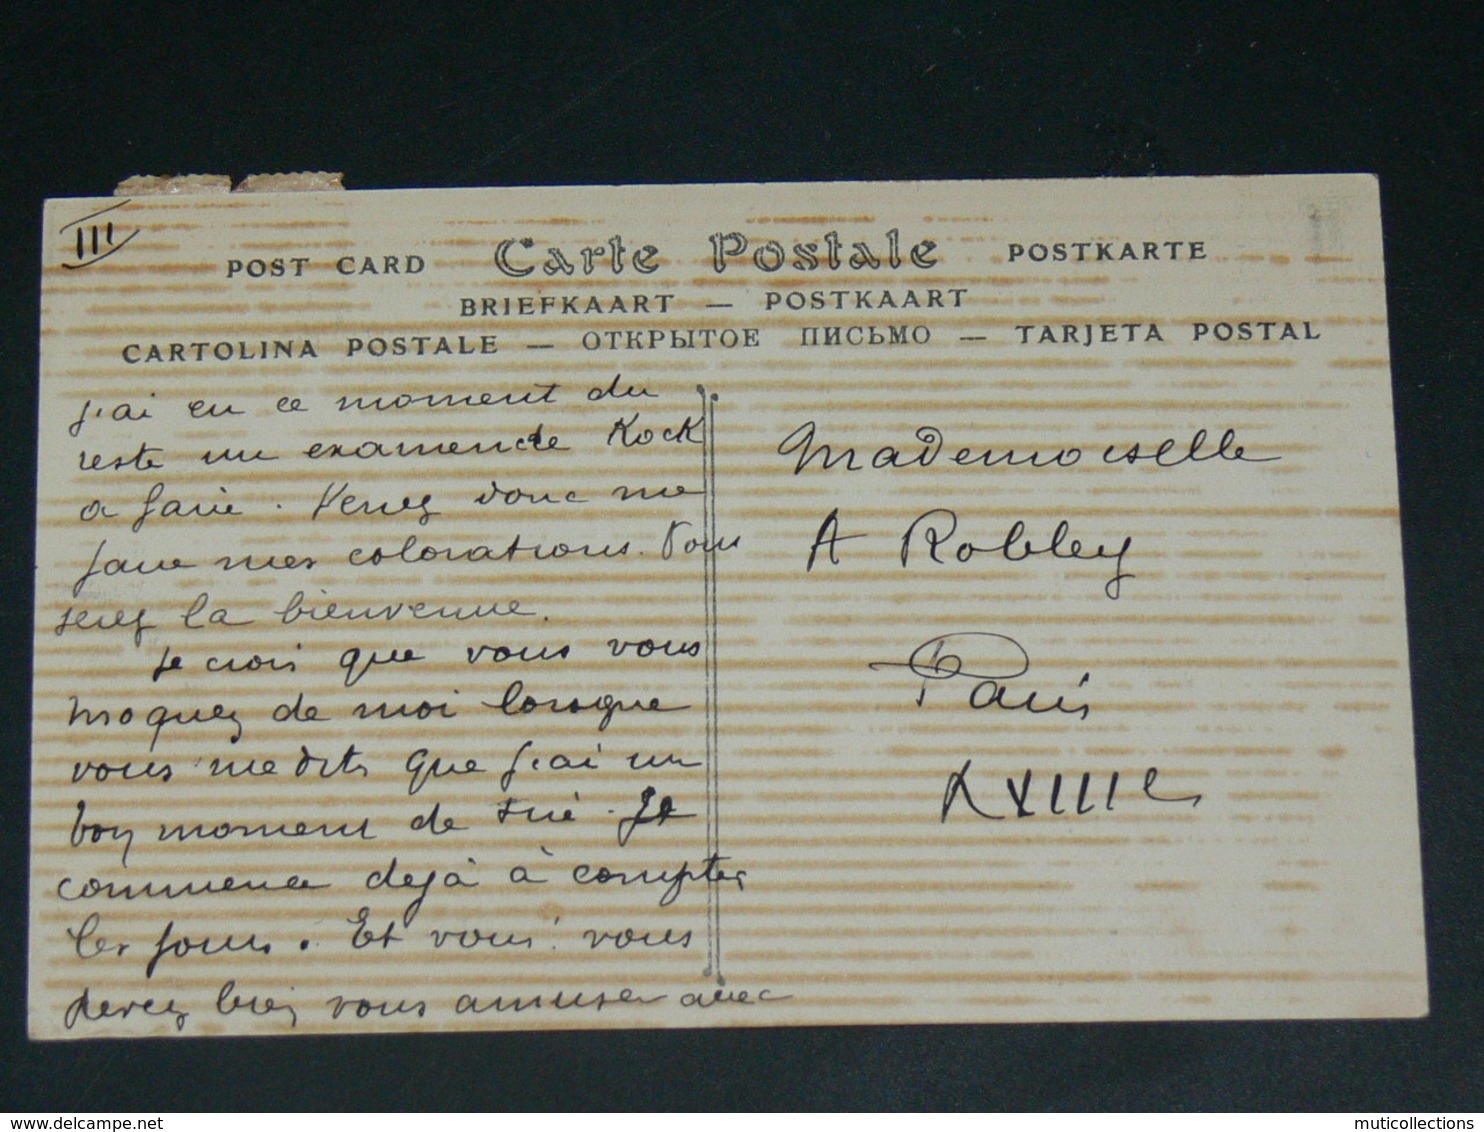 III
POST CARD Carte Postale POSTKARTE
BRIEFKAART — POSTKAART
CARTOLINA POSTALE — ОТКРЫТОЕ ПИСЬМО — TARJETA POSTAL
J'ai en ce moment du
reste un examen de Kock
a faire. Venez donc me
faire mes colorations. Vous
serez la bienvenue.
Je crois que vous vous
moquez de moi lorsque
vous me dites que j'ai un
bon moment de tiré. Je
commence dejà à compter
les jours. Et vous! vous
devez bien vous amuser avec
Mademoiselle
A Robley
Paris
XVIIIe
muticollections